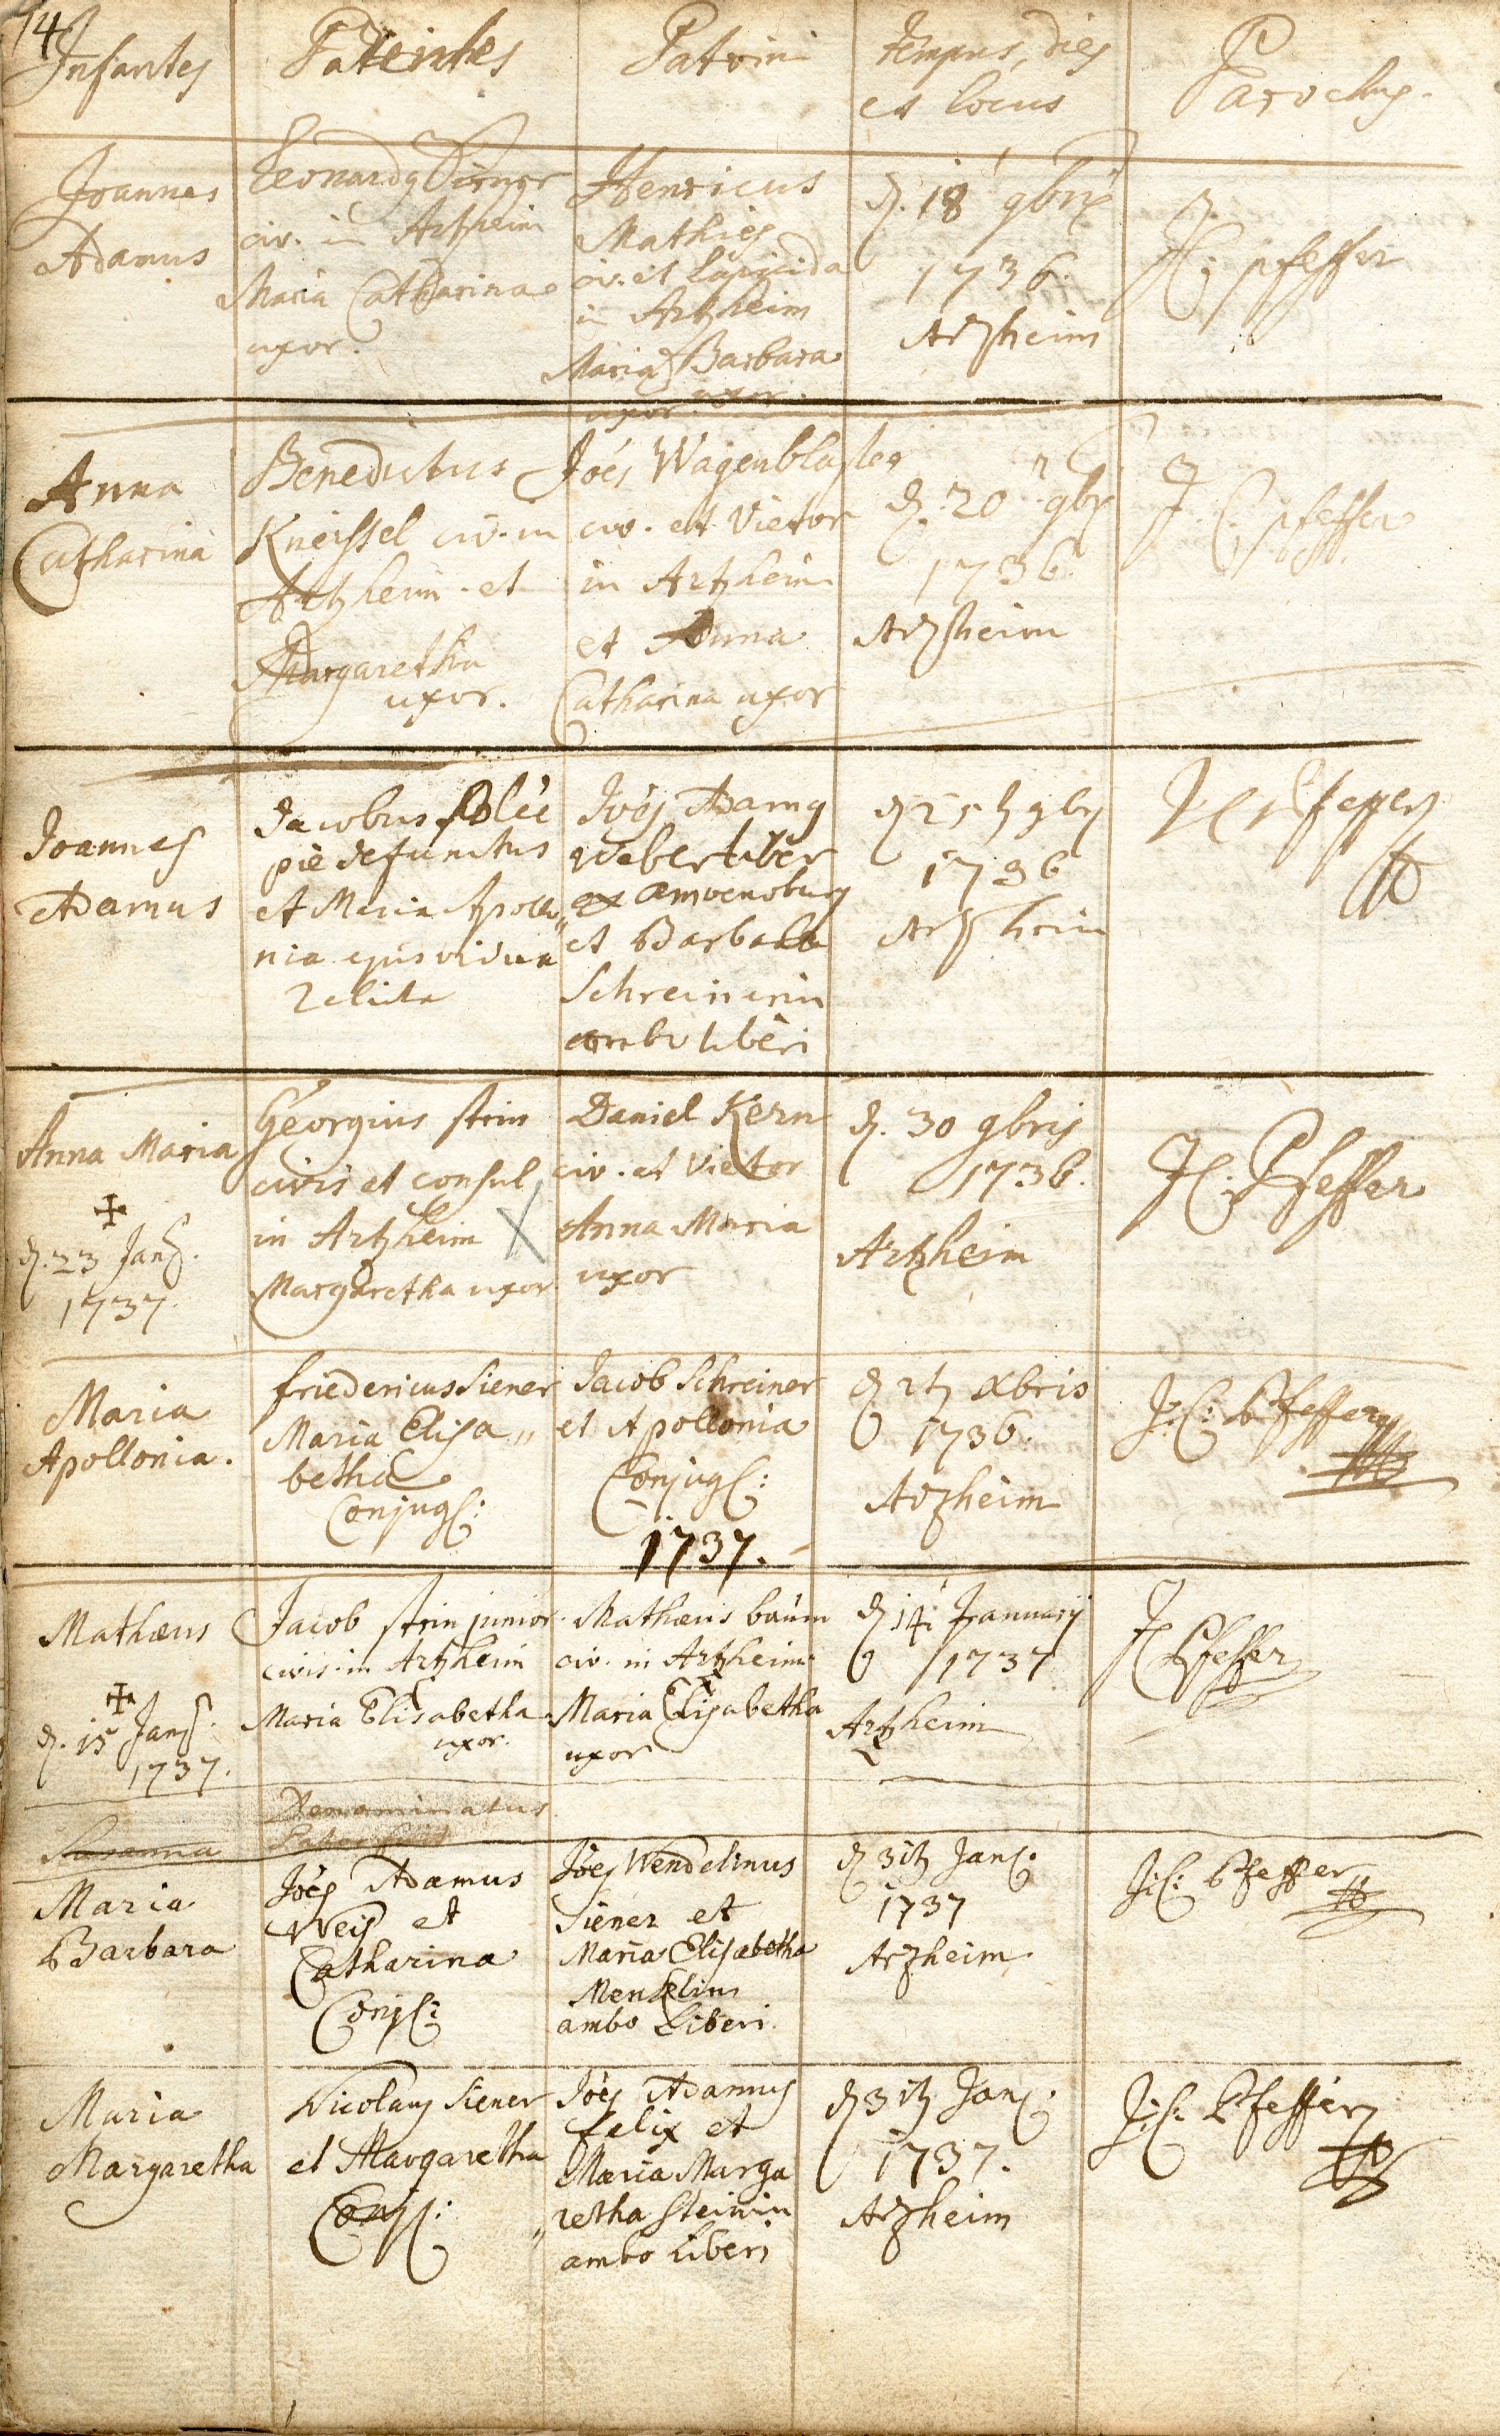 74
Infantes
Parentes
Patrini
tempus, dies
et locus
Parochus.
Joannes
Adamus
Leonardg
civ. in Artzheim
Maria Catharina
uxor.
Henricus
Mathies
civ. et lapicida
in Artzheim
Maria Barbara
uxor
d. 18 9bris
1736.
Arzheim
J C pfeffer
Anna
Catharina
Benedictus
Kneissel civ. in
Artzheim et
Margaretha
uxor.
Joes Wagenblast
civ. et Vietor
in Artzheim
et Anna
Catharina uxor
d. 20 9br
1736
Arzheim
J. C. pfeffer
Joannes
Adamus
Jacobus
pie defunctus
et Maria Apollo„
nia ejus vidua
relicta
Joes Adamg
Weber
ex
et Barbara
Schreinerin
ambo liberi
d 25 9br
1736
Arzheim
J C Pfeffer
Anna Maria
✠
d. 23 Jan.
1737.
Georgius stein
civis et consul
in Artzheim
Margaretha uxor
Daniel Kern
civ. et Vietor
Anna Maria
uxor
d. 30 9bris
1736.
Artzheim
J C: Pfeffer
Maria
Apollonia.
friedericus Siener
Maria Elisa„
betha
Conjug:
Jacob Schreiner
et Apollonia
Conjug:
d 2t Xbris
1736.
Arzheim
J: C: Pfeffer
1737.
Mathæus
✠
d. 15 Jan.
1737.
Jacob stein junior
civis in Artzheim
Maria Elisabetha
uxor.
Mathæus baúm
civ. in Artzheim
Maria Elisabetha
uxor
d 14 Januarij
1737
Artzheim
J C Pfeffer
Susanna
Maria
Barbara
Joes Adamus
Weis et
Catharina
Conj:
Joes Wendelinus
Siener et
Maria Elisabetha
ambo Liberi.
d 31t Jan:
1737
Arzheim
J: C: Pfeffer
Maria
Margaretha
Nicolaus Siener
et Margaretha
Conj:
Joes Adamus
felix et
Maria Marga
„retha steinin
ambo Liberi
d 31t Jan:
1737.
Arzheim
J: C: Pfeffer